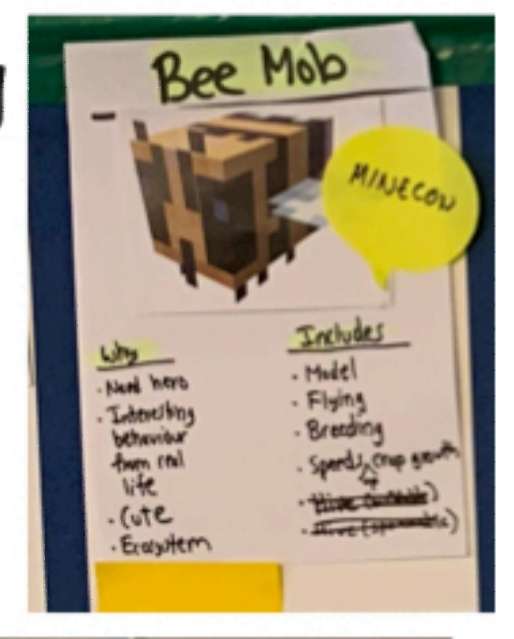 Bee Mob
MINECON
Why
• Need hero
• Interesting
behaviour
from real
life
• Cute
• Ecosystem
Includes
• Model
• Flying
• Breeding
• Speeds crop growth